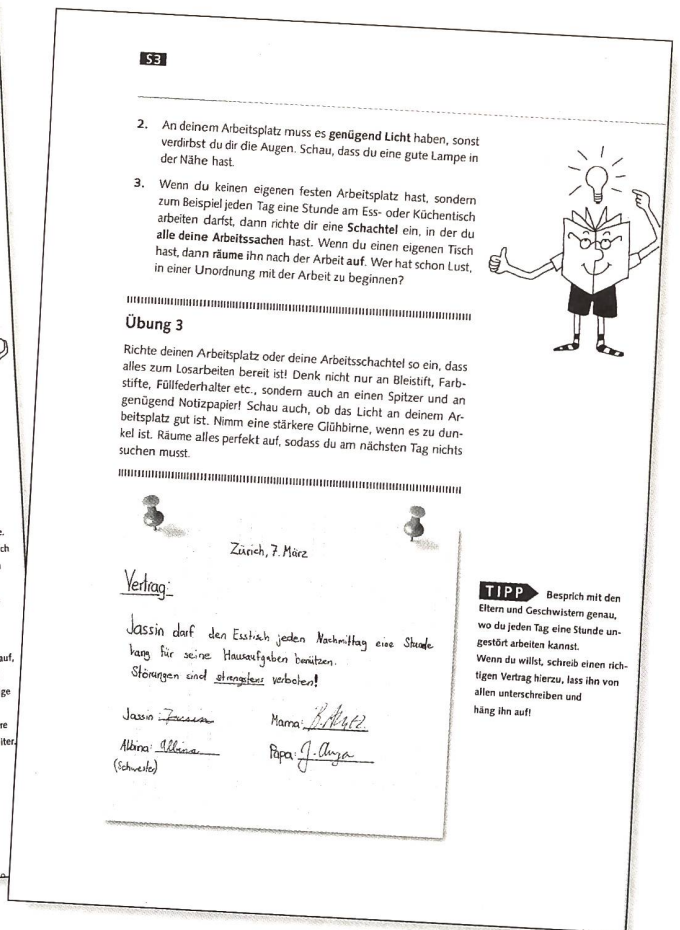 S3
2. An deinem Arbeitsplatz muss es genügend Licht haben, sonst
verdirbst du dir die Augen. Schau, dass du eine gute Lampe in
der Nähe hast.
3. Wenn du keinen eigenen festen Arbeitsplatz hast, sondern
zum Beispiel jeden Tag eine Stunde am Ess- oder Küchentisch
arbeiten darfst, dann richte dir eine Schachtel ein, in der du
alle deine Arbeitssachen hast. Wenn du einen eigenen Tisch
hast, dann räume ihn nach der Arbeit auf. Wer hat schon Lust,
in einer Unordnung mit der Arbeit zu beginnen?
Übung 3
Richte deinen Arbeitsplatz oder deine Arbeitsschachtel so ein, dass
alles zum Losarbeiten bereit ist! Denk nicht nur an Bleistift, Farb-
stifte, Füllfederhalter etc., sondern auch an einen Spitzer und an
genügend Notizpapier! Schau auch, ob das Licht an deinem Ar-
beitsplatz gut ist. Nimm eine stärkere Glühbirne, wenn es zu dun-
kel ist. Räume alles perfekt auf, sodass du am nächsten Tag nichts
suchen musst.
Zürich, 7. März
Vertrag:
Jassin darf den Esstisch jeden Nachmittag eine Stunde
lang für seine Hausaufgaben benützen.
Störungen sind strengstens verboten!
Jassin: Jassin
Mama:
Albina: Albina
Papa:
(Schwester)
TIPP Besprich mit den
Eltern und Geschwistern genau,
wo du jeden Tag eine Stunde un-
gestört arbeiten kannst.
Wenn du willst, schreib einen rich-
tigen Vertrag hierzu, lass ihn von
allen unterschreiben und
häng ihn auf!
e.
ch
auf,
ge
re
iter.